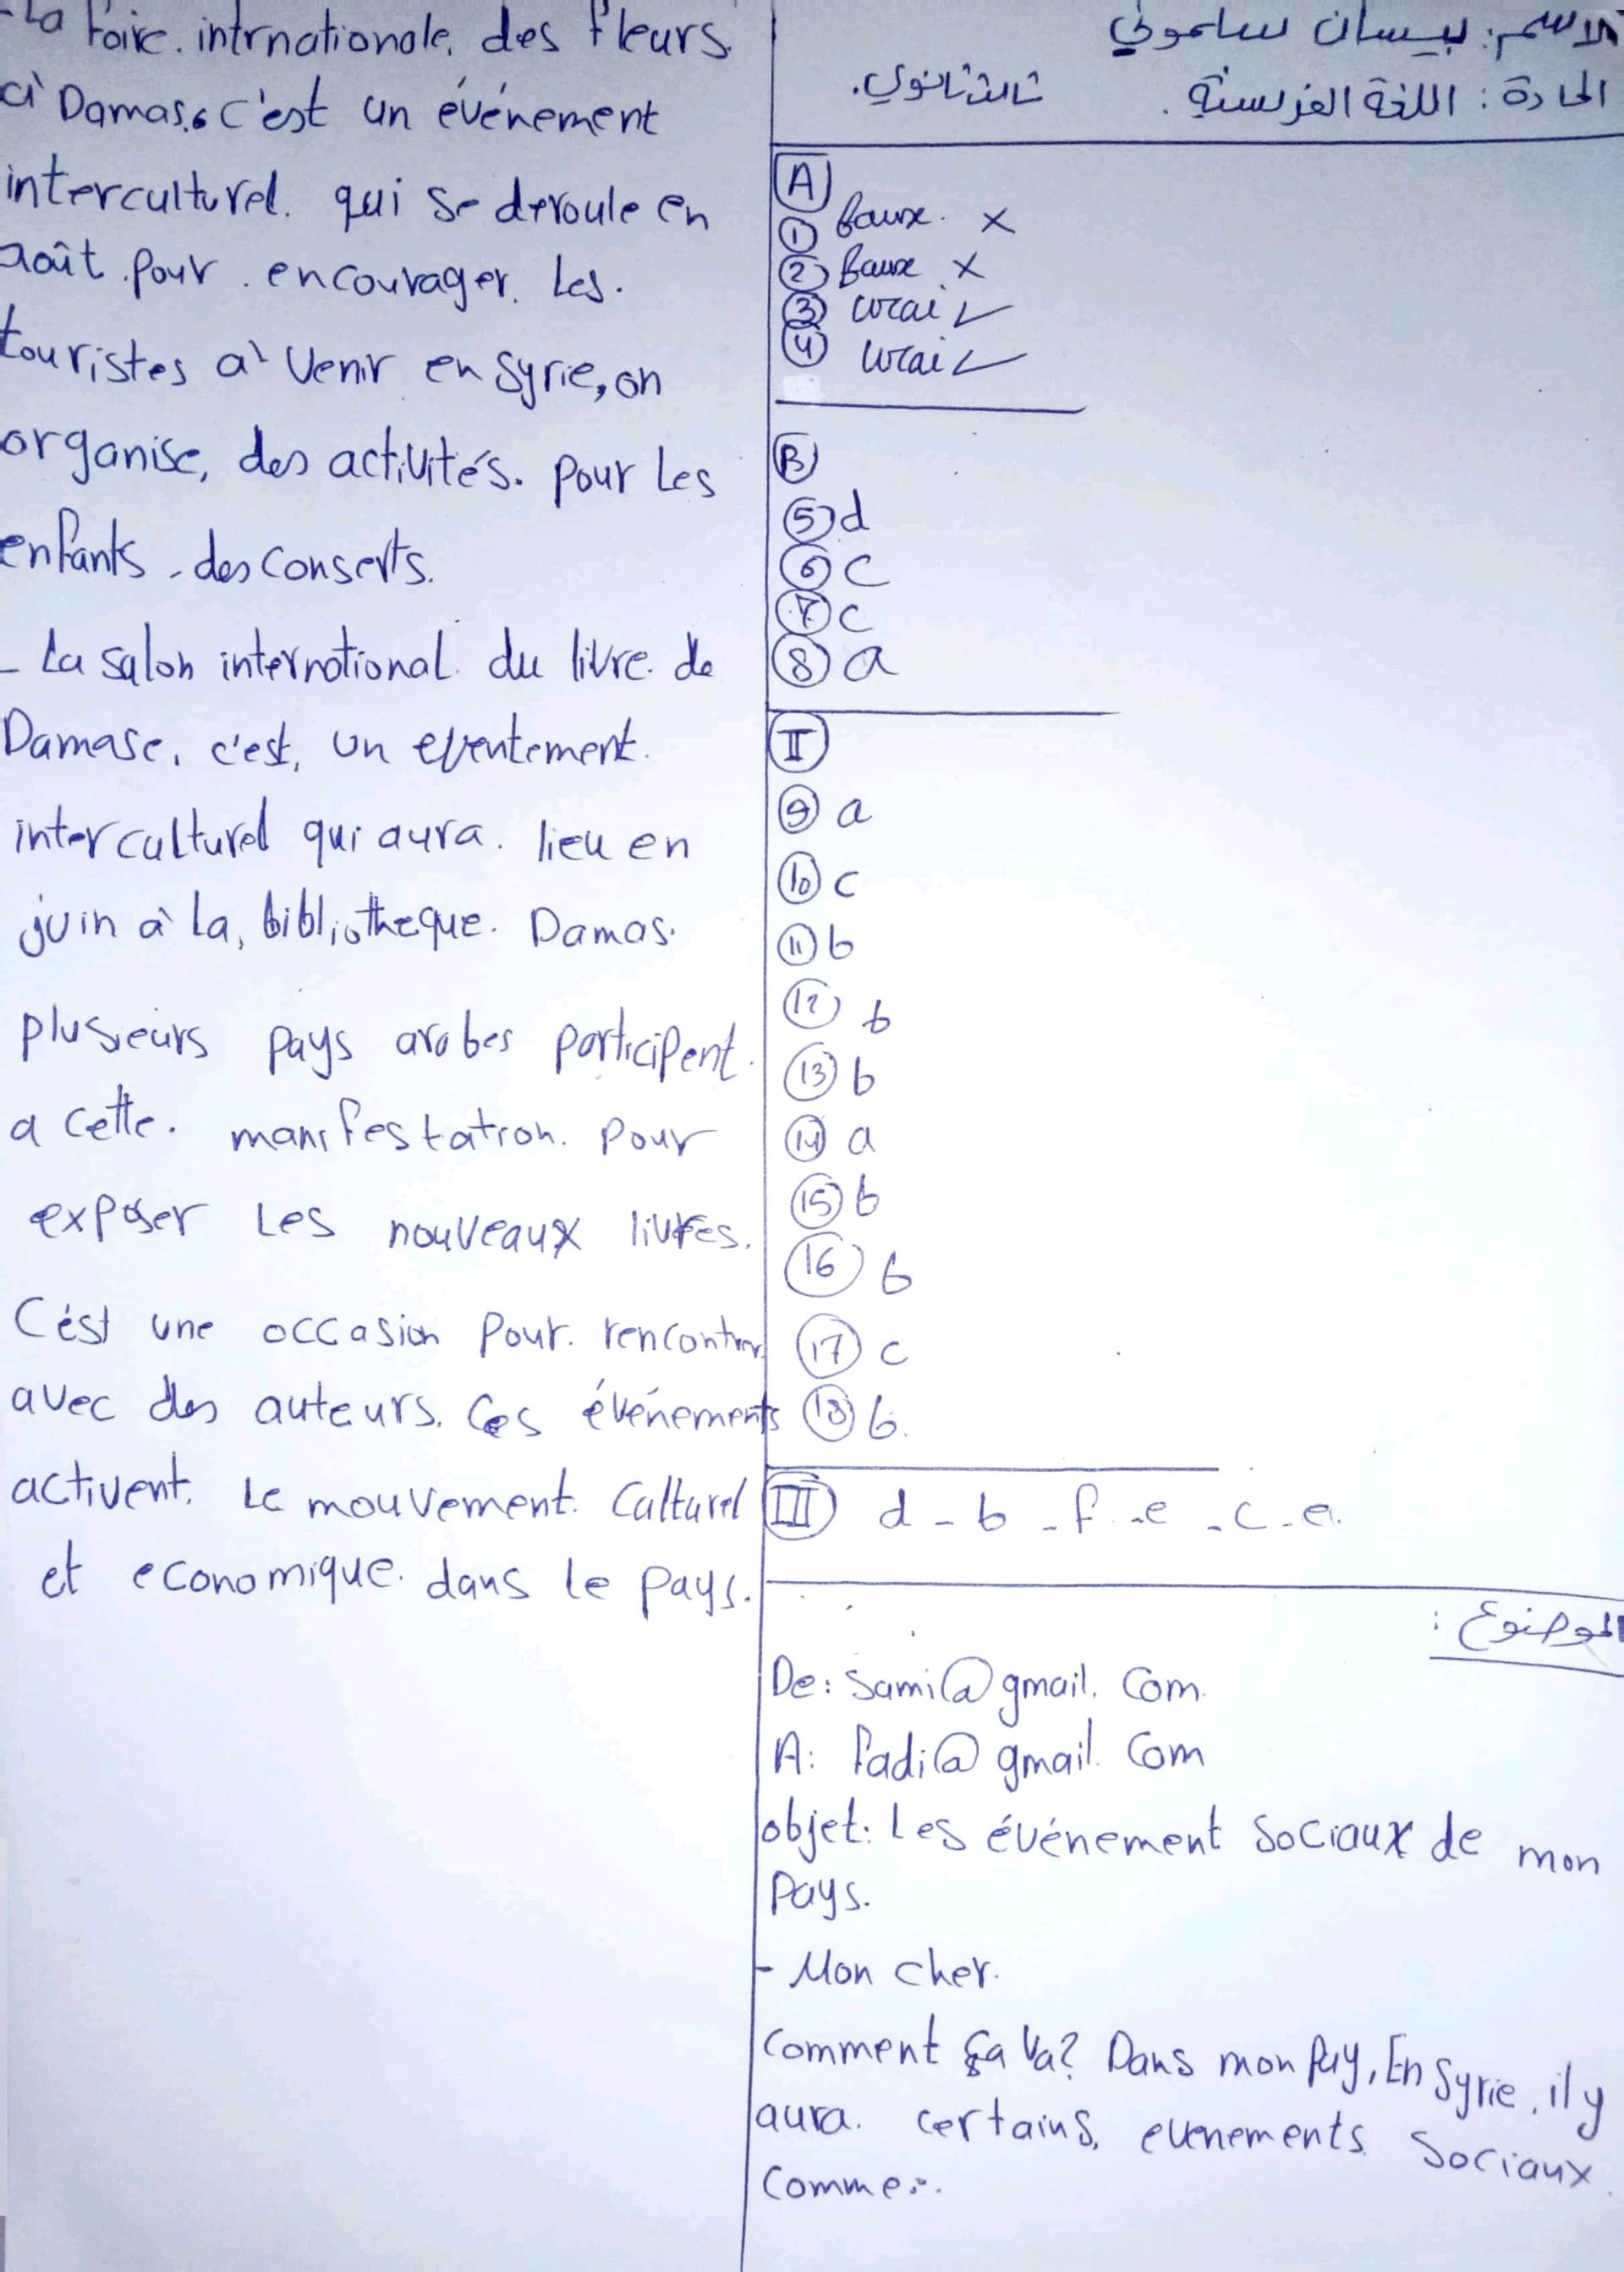 الاسم: بيسان سلموني
المادة: اللغة الفرنسية. ثالث ثانوي.
A
1 faux. x
2 faux x
3 vrai ✓
4 vrai ✓
B
5 d
6 c
7 c
8 a
II
9 a
10 c
11 b
12 b
13 b
14 a
15 b
16 b
17 c
18 b.
III d - b - f - e - c - a.
الموضوع:
De: Sami@gmail. Com.
A: fadi@gmail. Com
objet: Les événement Sociaux de mon
Pays.
- Mon cher.
Comment ça Va? Dans mon Pay, En Syrie, il y
aura. certains, evenements Sociaux.
Comme:.
-La Foire. intrnationale. des fleurs.
à Damas. c'est un événement
interculturel. qui se deroule en
août. pour. encourager. Les.
touristes à Venir en Syrie, on
organise, des activités. pour Les
enfants - des conserts.
- La salon international. du livre. de
Damase. c'est, un eventement.
interculturel qui aura. lieu en
juin à la, bibliotheque. Damas.
plusieurs pays arabes participent.
a cette. manifestation. pour
exposer Les nouveaux livres.
C'ést une occasion pour. rencontrer.
avec des auteurs. Ces événements
activent. Le mouvement. Culturel
et economique. dans le pays.